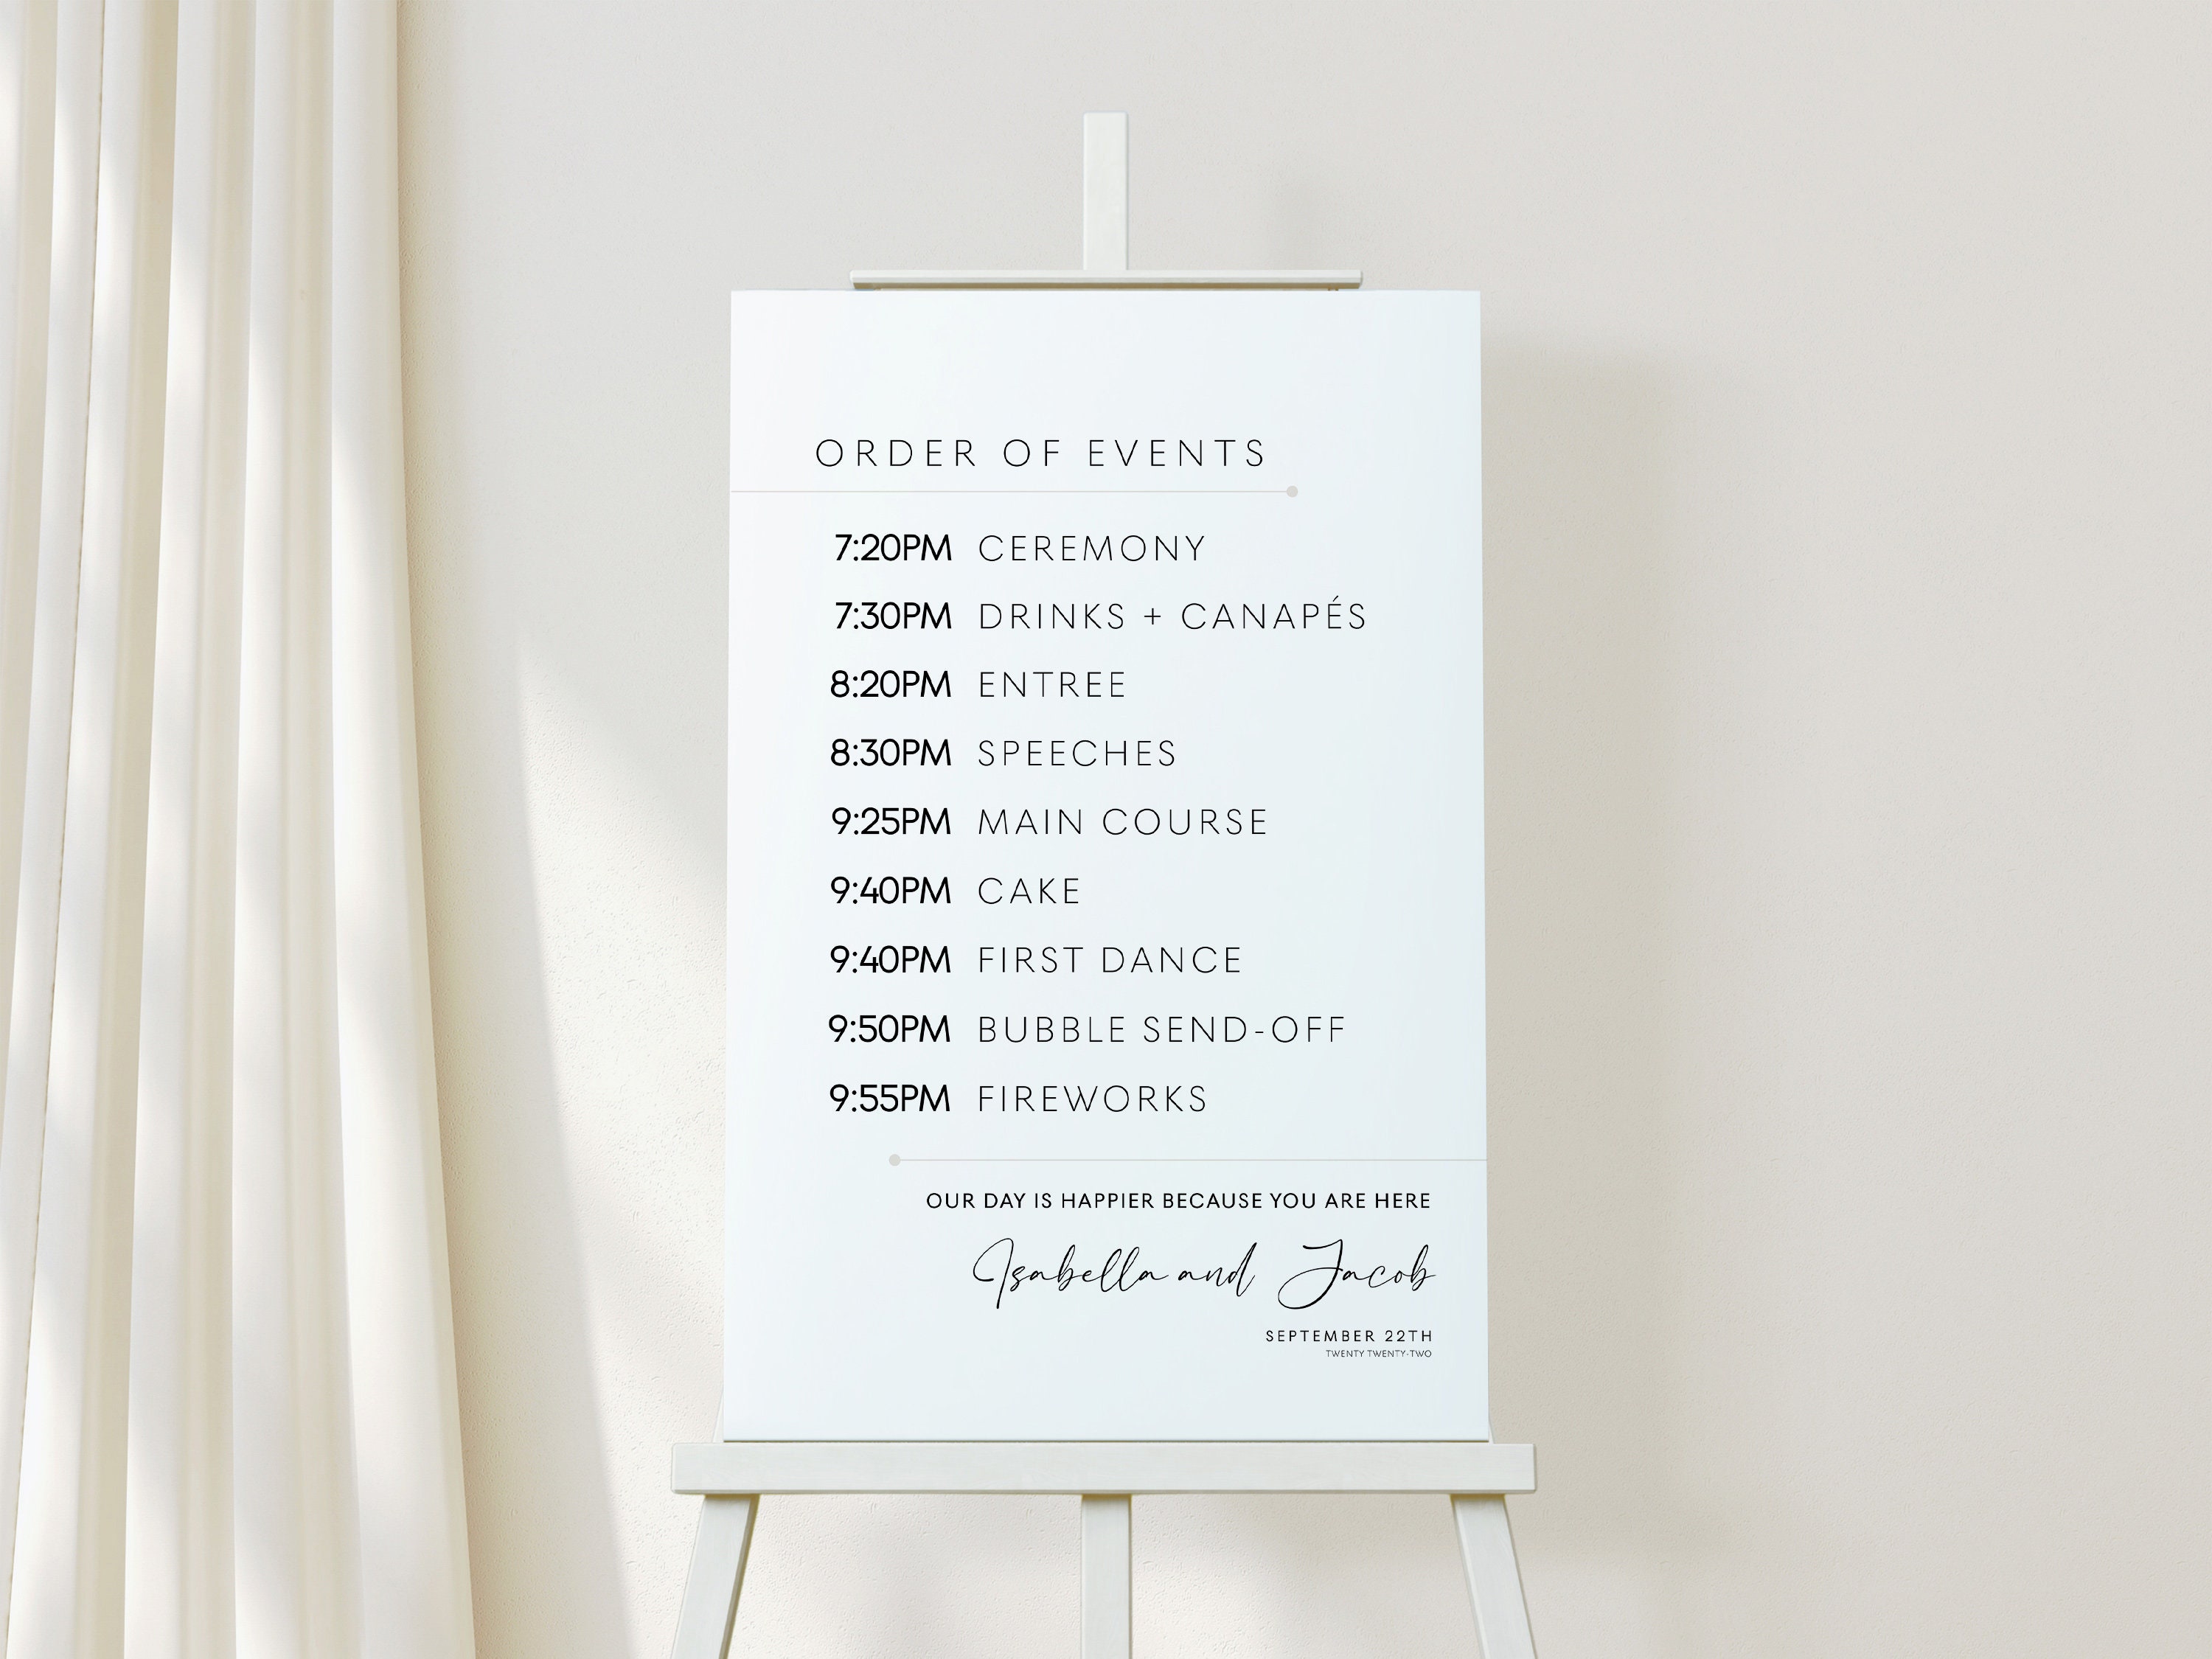 ORDER OF EVENTS
7:20PM CEREMONY
7:30PM DRINKS + CANAPÉS
8:20PM ENTREE
8:30PM SPEECHES
9:25PM MAIN COURSE
9:40PM CAKE
9:40PM FIRST DANCE
9:50PM BUBBLE SEND-OFF
9:55PM FIREWORKS
OUR DAY IS HAPPIER BECAUSE YOU ARE HERE
Isabella and Jacob
SEPTEMBER 22TH
TWENTY TWENTY-TWO